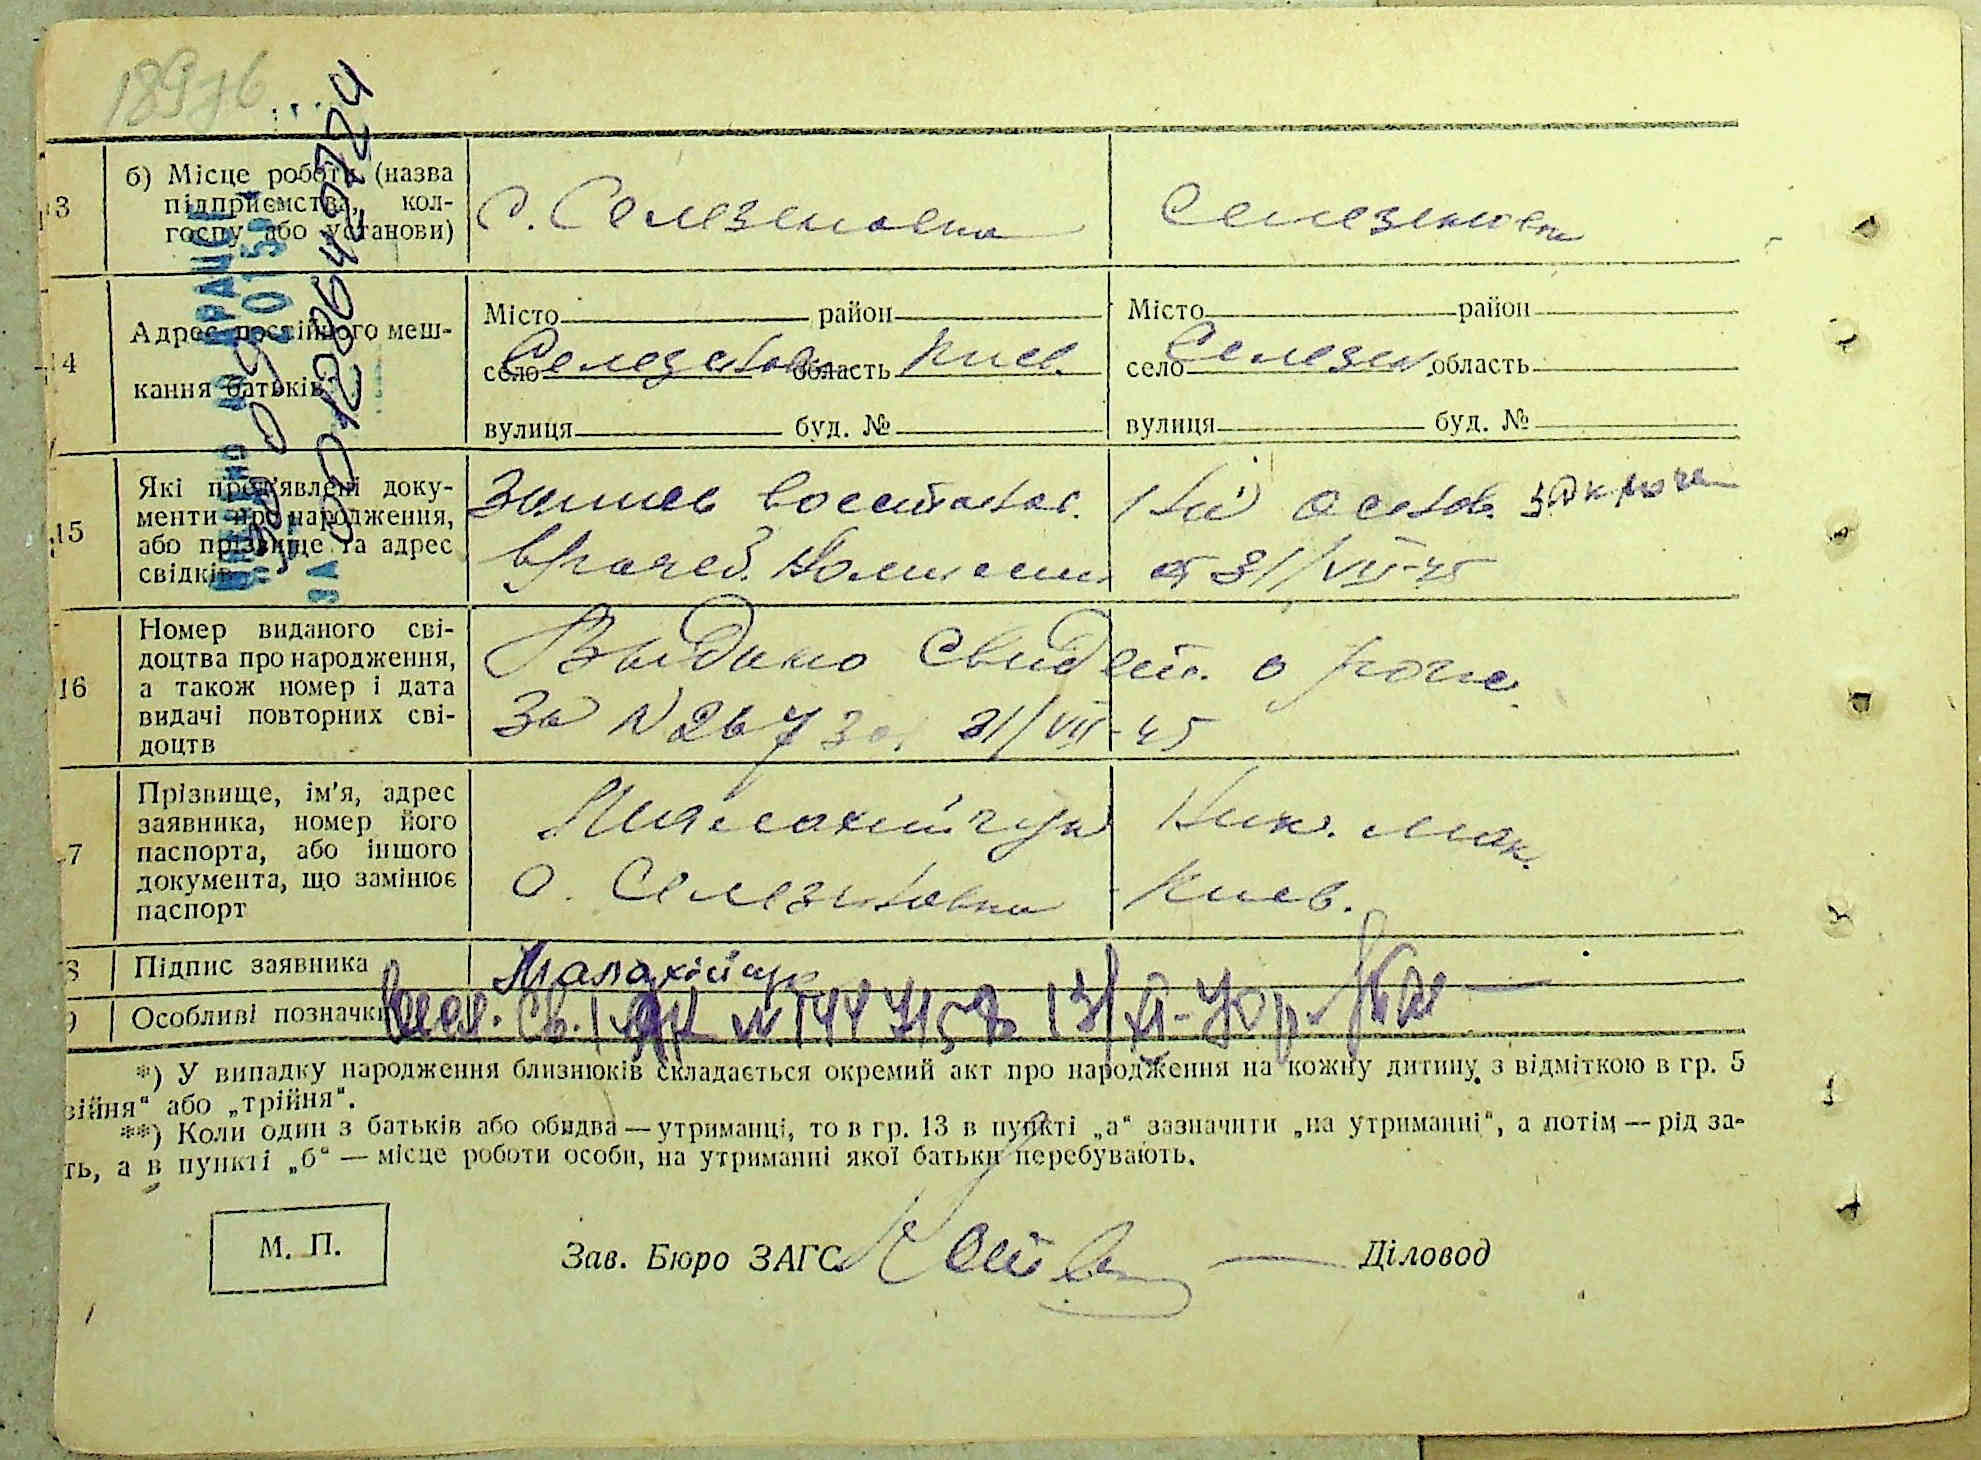 18976
13
б) Місце роботи (назва
підприємства, кол-
госпу або установи)
с. Селезеновка
Селезеновка
14
Адрес постійного меш-
кання батьків
Місто район
село Селезеновка область Киев.
вулиця буд. №
Місто район
село Селезен. область
вулиця буд. №
15
Які пред'явлені доку-
менти про народження,
або прізвище та адрес
свідків
Запись восстанов. На основ. заключ
врачеб. комиссии от 31/VII-45
16
Номер виданого сві-
доцтва про народження,
а також номер і дата
видачі повторних сві-
доцтв
Выдано свидет. о рожд.
за N 267 31/VII-45
17
Прізвище, ім'я, адрес
заявника, номер його
паспорта, або іншого
документа, що замінює
паспорт
Ник. Мак.
с. Селезновка Киев.
18
Підпис заявника
19
Особливі позначки
*) У випадку народження близнюків складається окремий акт про народження на кожну дитину з відміткою в гр. 5
війня" або „трійня".
**) Коли один з батьків або обидва — утриманці, то в гр. 13 в пункті „а" зазначити „на утриманні", а потім — рід за-
ть, а в пункті „б" — місце роботи особи, на утриманні якої батьки перебувають.
М. П.
Зав. Бюро ЗАГС
Діловод